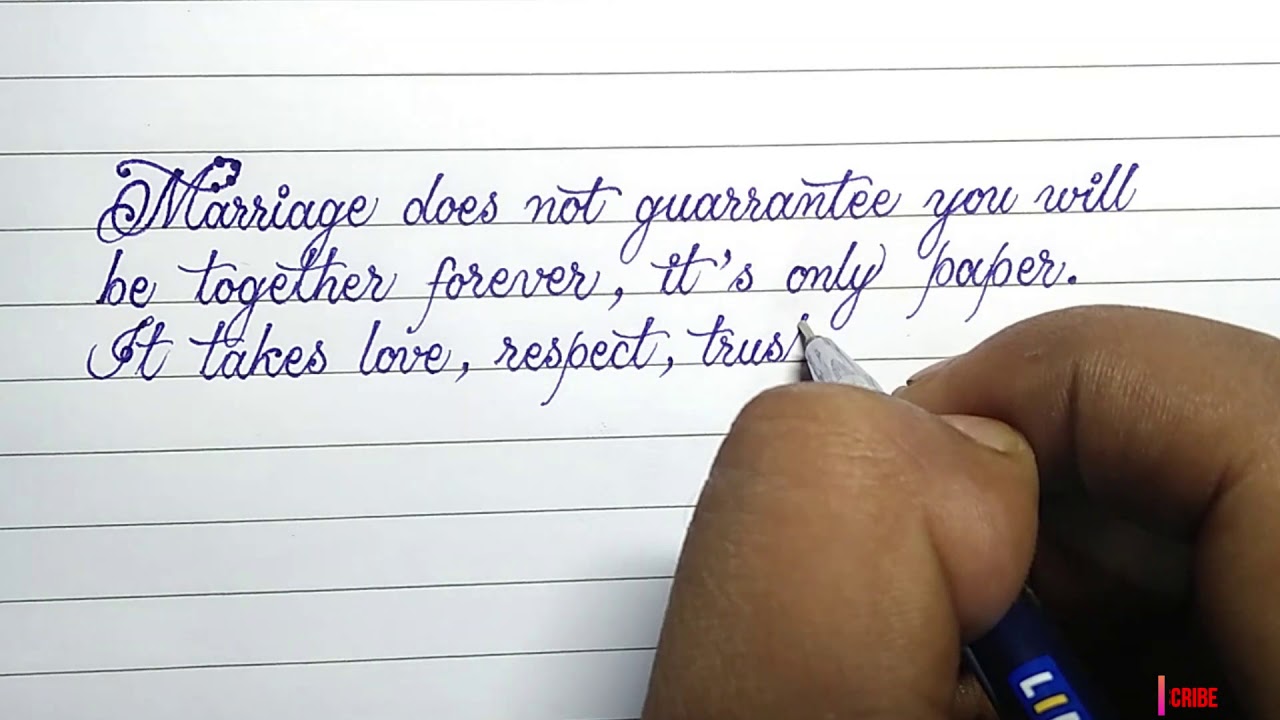 Marriage does not guarrantee you will
be together forever, it's only paper.
It takes love, respect, trus
LI
CRIBE